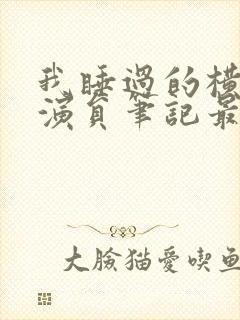 我睡過的橫
演員筆記最
大臉猫愛喫鱼